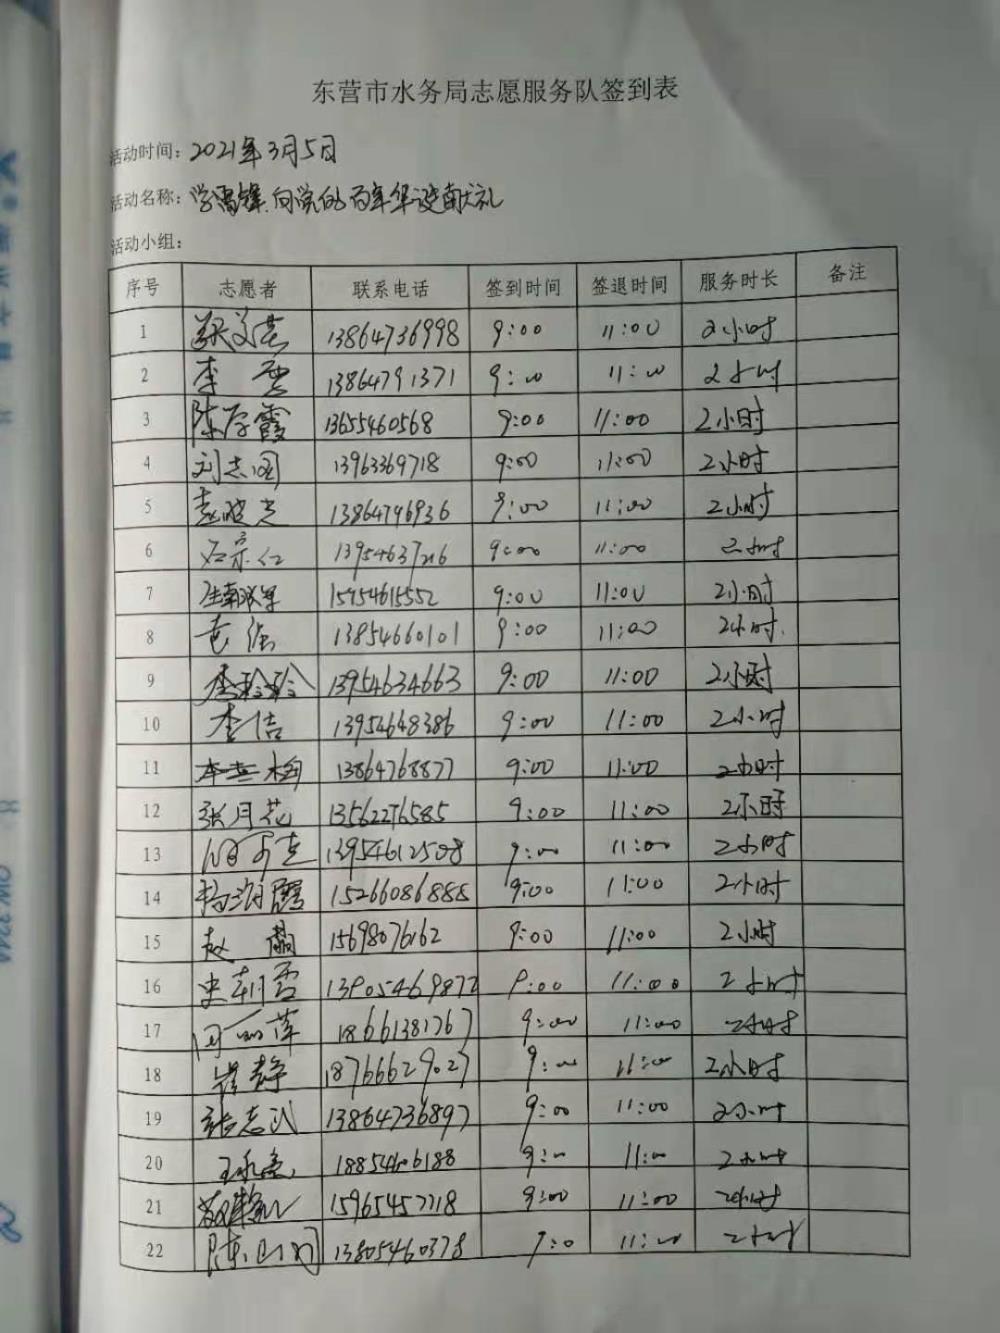 东营市水务局志愿服务队签到表
活动时间：2021年3月5日
活动名称：学雷锋.向党的百年华诞献礼
活动小组：
序号 志愿者 联系电话 签到时间 签退时间 服务时长 备注
1 13864736998 9:00 11:00 2小时
2 李 13864791371 9:00 11:00 2小时
3 陈存霞 13655460568 9:00 11:00 2小时
4 刘志国 13963369718 9:00 11:00 2小时
5 13864796936 9:00 11:00 2小时
6 石宗仁 13954637216 9:00 11:00 2小时
7 15954615552 9:00 11:00 2小时
8 13854660101 9:00 11:00 2小时.
9 李玲玲 13954634663 9:00 11:00 2小时
10 李洁 13954648386 9:00 11:00 2小时
11 13864768877 9:00 11:00 2小时
12 张月花 13562276585 9:00 11:00 2小时
13 13954612508 9:00 11:00 2小时
14 杨润霞 15266086885 9:00 11:00 2小时
15 赵 15698076162 9:00 11:00 2小时
16 史朝霞 9:00 11:00 2小时
17 18661381767 9:00 11:00 2小时
18 崔静 18766629027 9:00 11:00 2小时
19 张志武 13864736897 9:00 11:00 2小时
20 王永亮 18854606188 9:00 11:00 2小时
21 15965457718 9:00 11:00 2小时
22 陈 13805460378 9:0 11:00 2小时